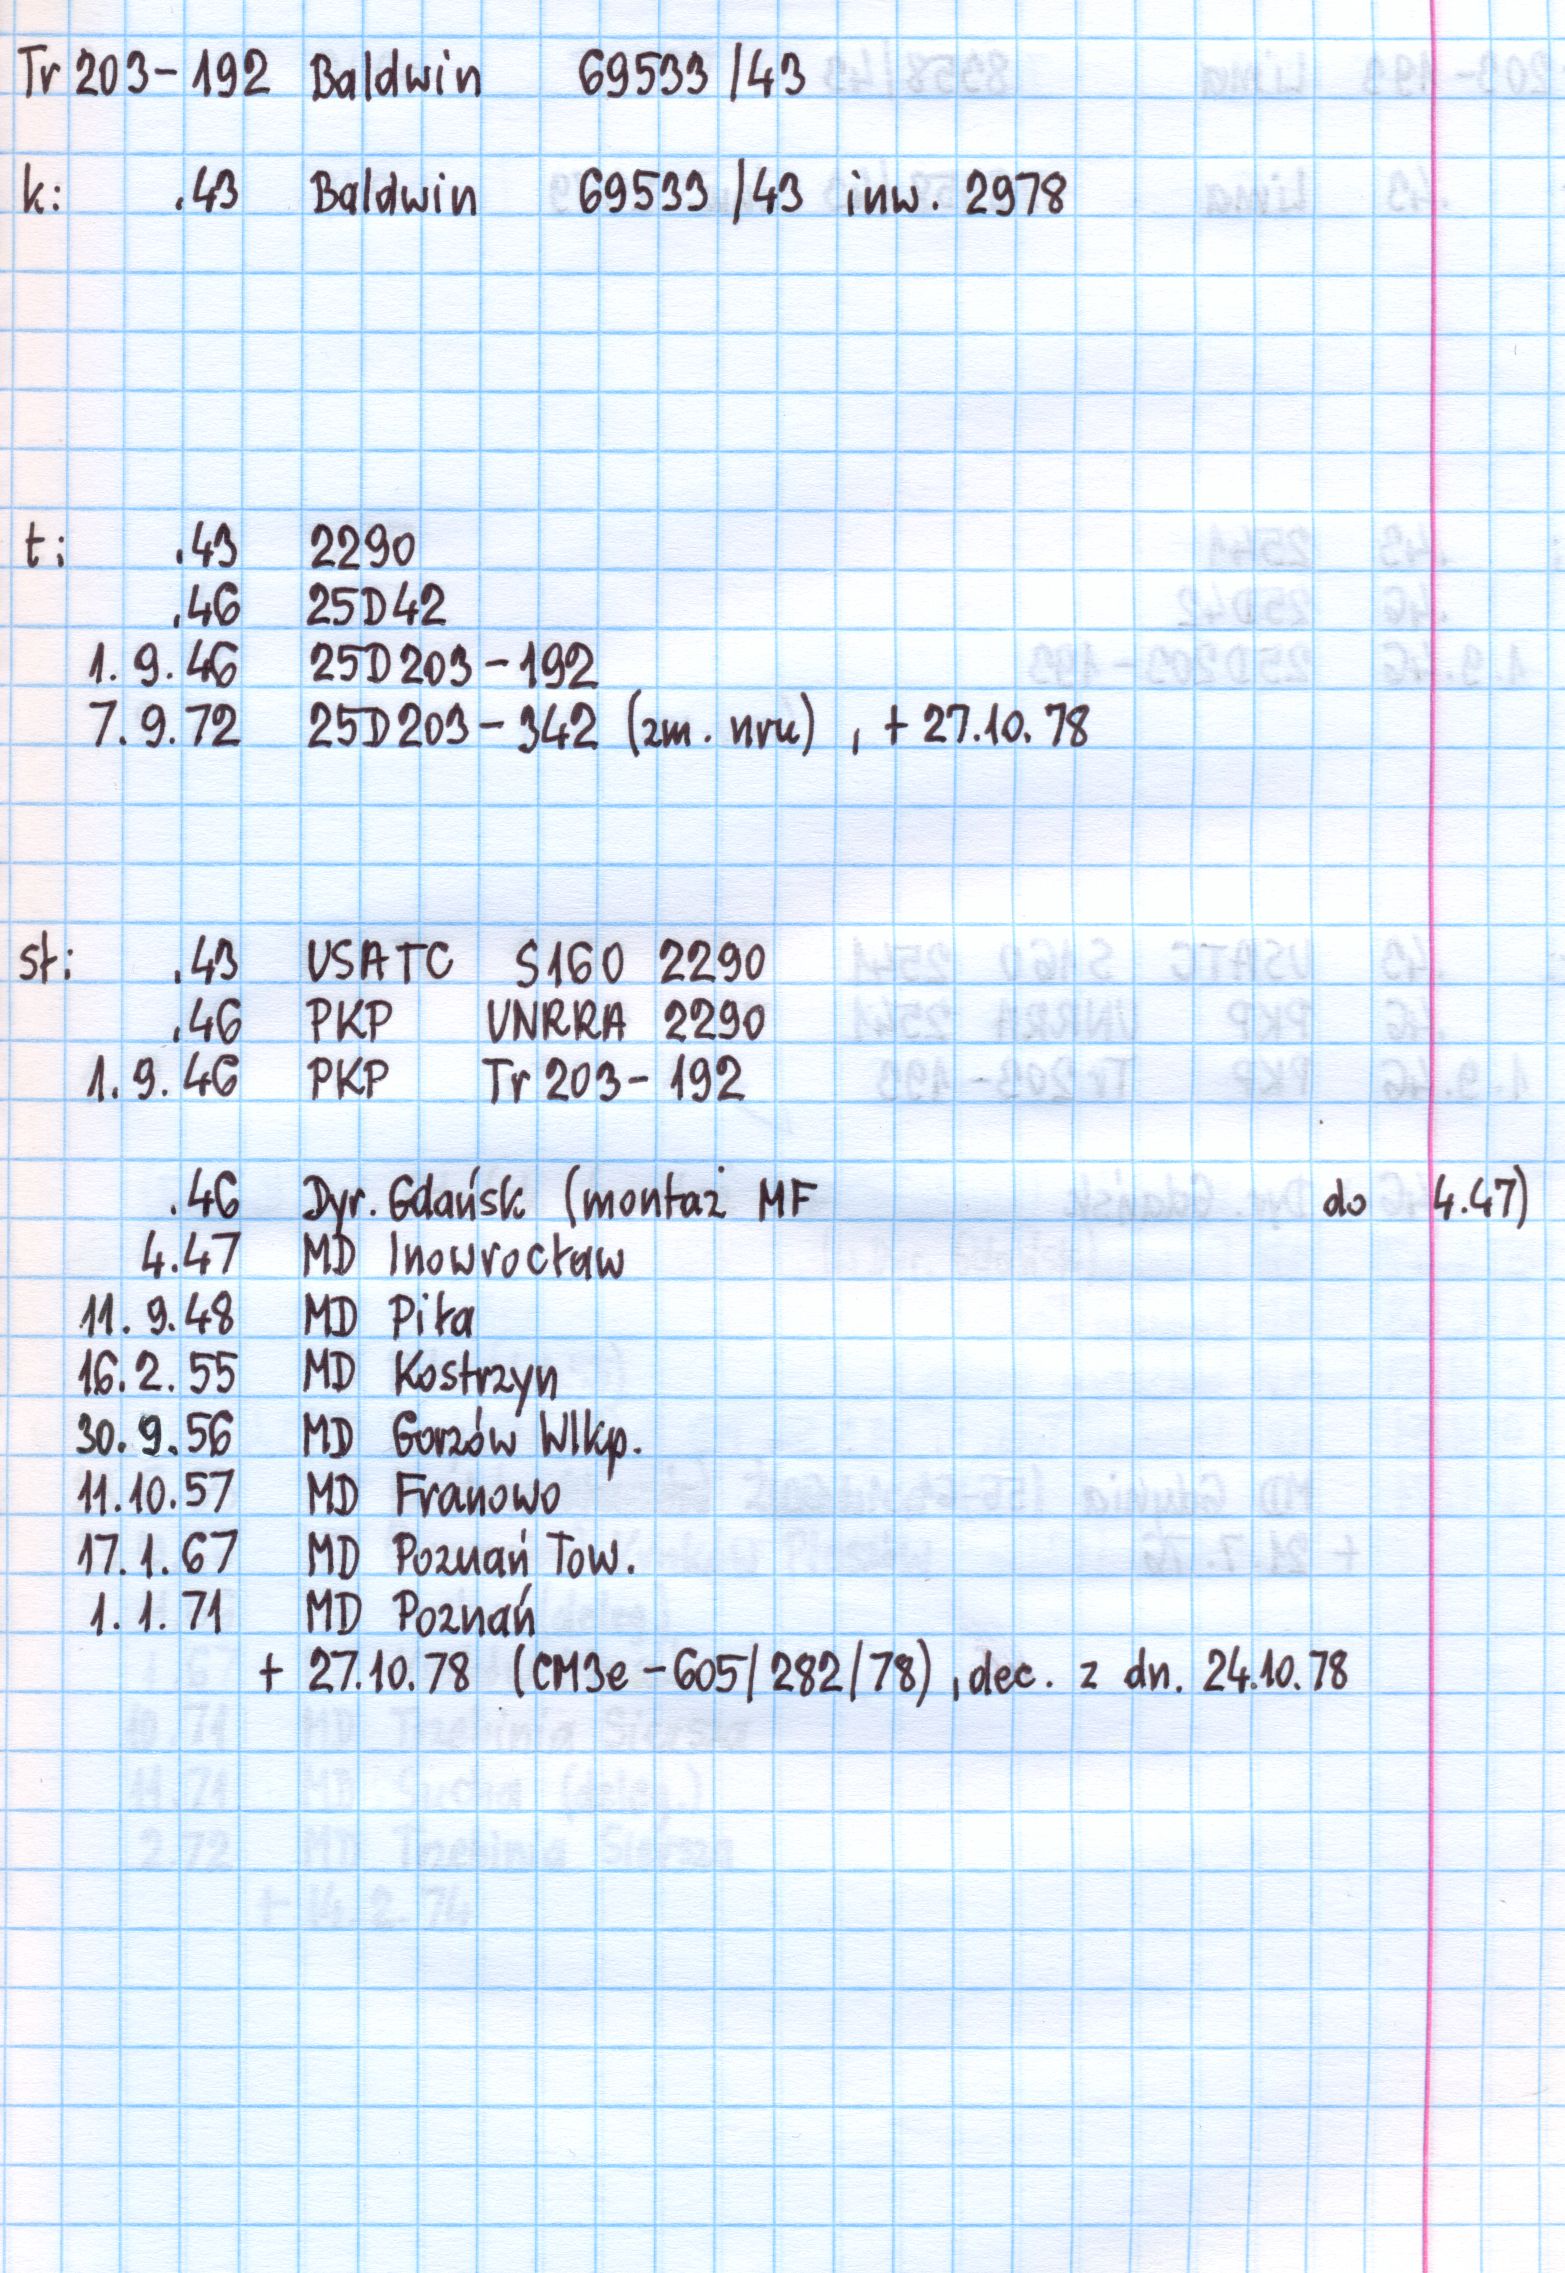 Tr 203-192 Baldwin 69533/43
k: .43 Baldwin 69533/43 inw. 2978
t: .43 2290
.46 25D42
1.9.46 25D203-192
7.9.72 25D203-342 (zm. nru), + 27.10.78
st: .43 USATC S160 2290
.46 PKP UNRRA 2290
1.9.46 PKP Tr 203-192
.46 Dyr. Gdańsk (montaż MF do 4.47)
4.47 MD Inowrocław
11.9.48 MD Piła
16.2.55 MD Kostrzyn
30.9.56 MD Gorzów Wlkp.
11.10.57 MD Franowo
17.1.67 MD Poznań Tow.
1.1.71 MD Poznań
+ 27.10.78 (CM3e-605/282/78), dec. z dn. 24.10.78